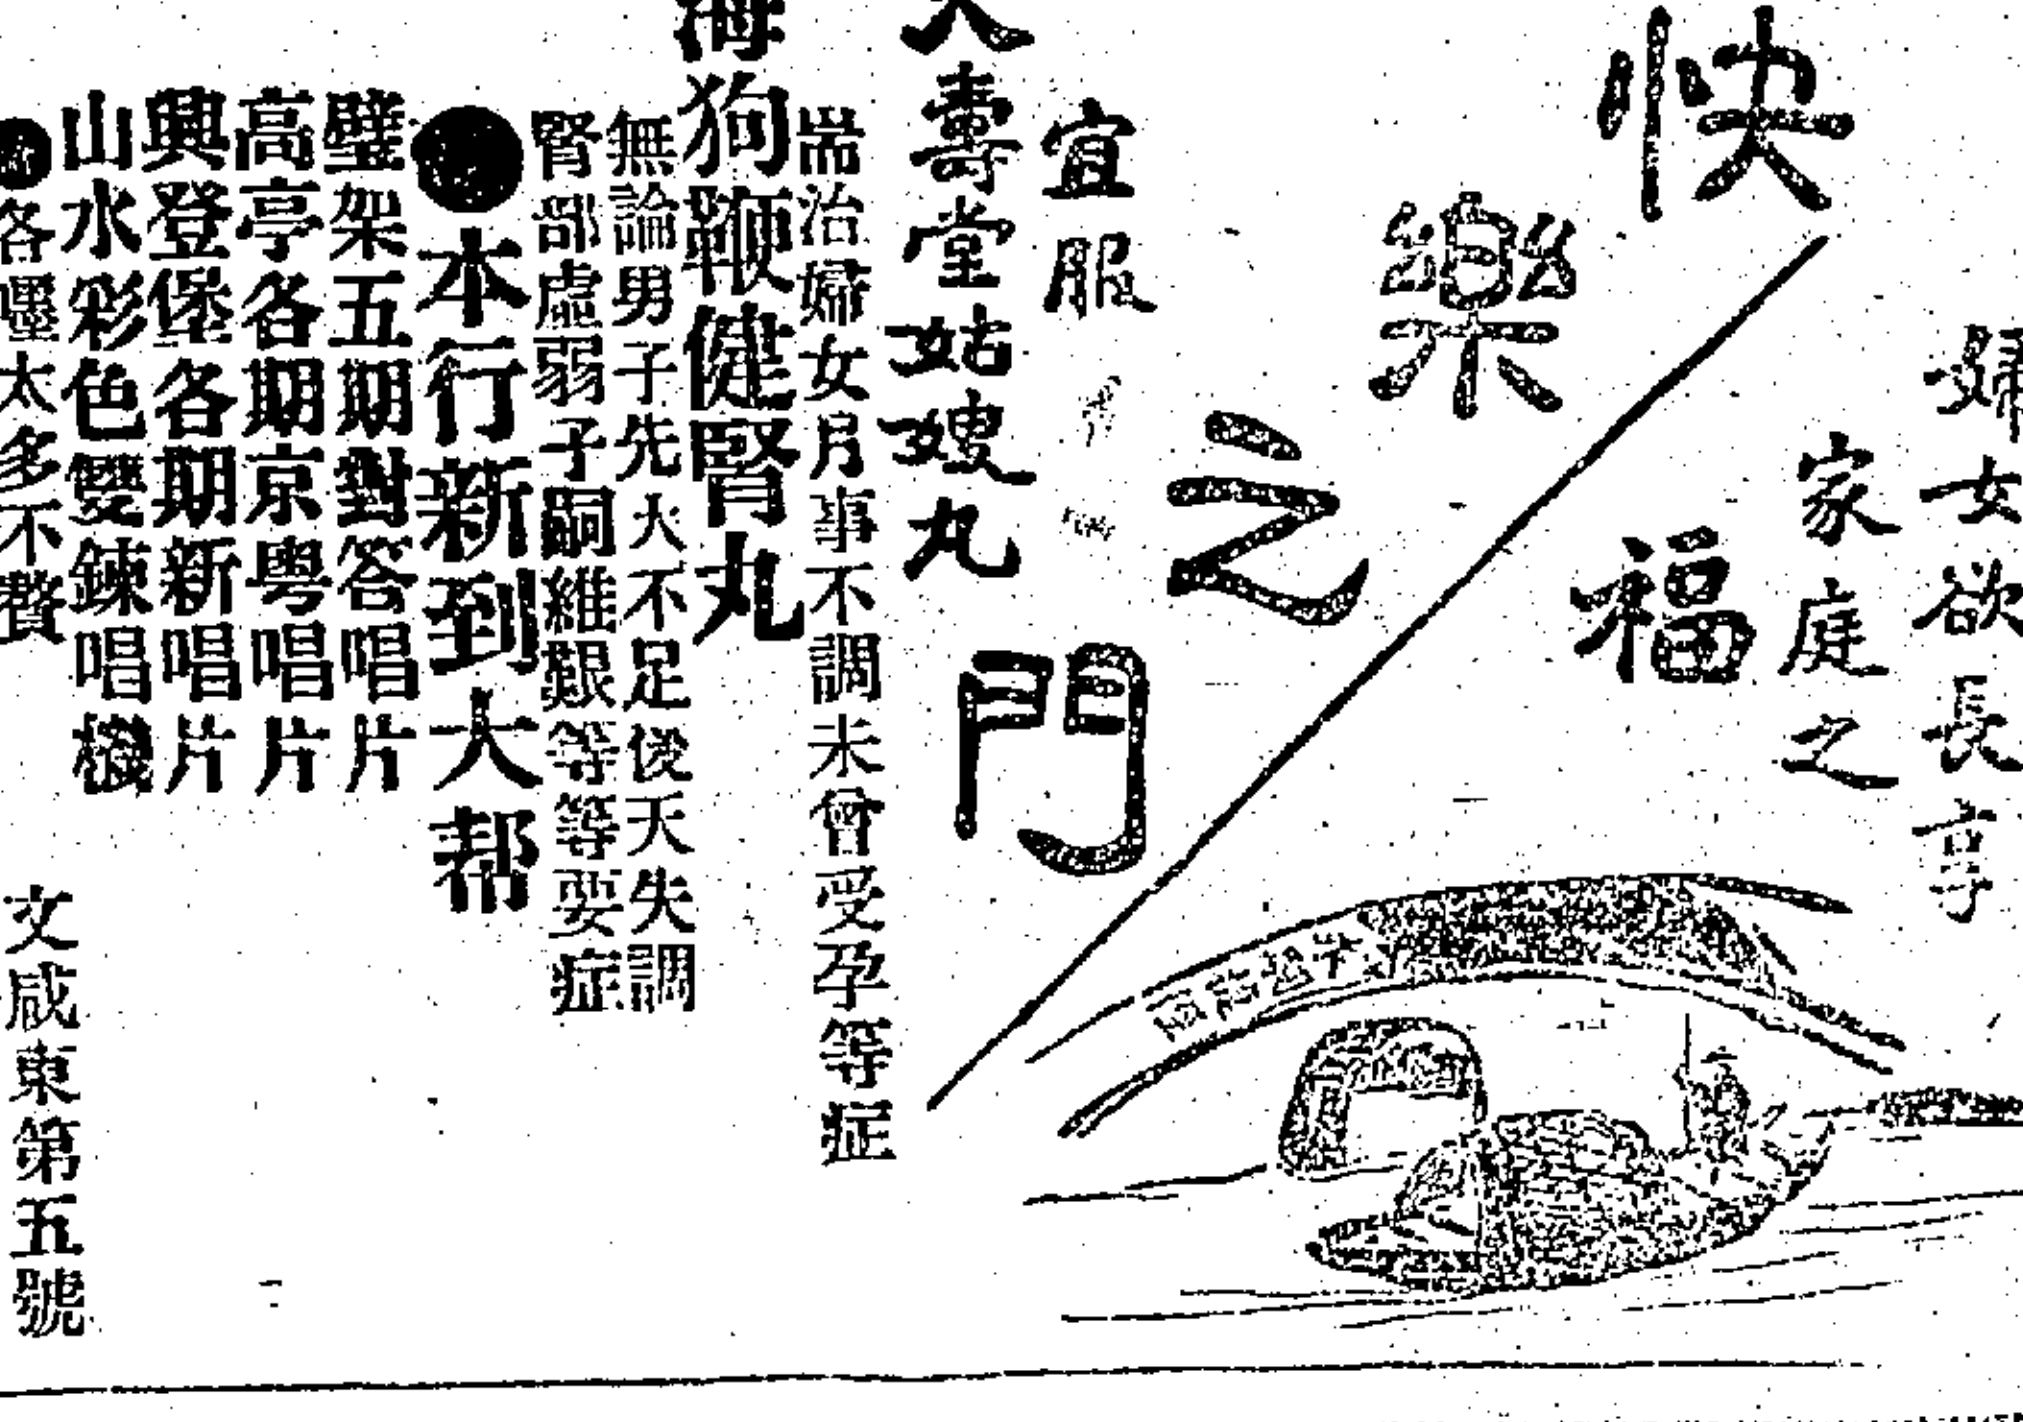 婦女欲長享
家庭之
福
快樂之門
宜服
人壽堂姑嫂丸
耑治婦女月事不調未曾受孕等症
海狗鞭健腎丸
無論男子先天不足後天失調
腎部虛弱子嗣維艱等等要症
本行新到大帮
璧架五期對答唱片
高亭各期京粵唱片
興登堡各期新唱片
山水彩色雙鍊唱機
各種太多不贅
文咸東第五號